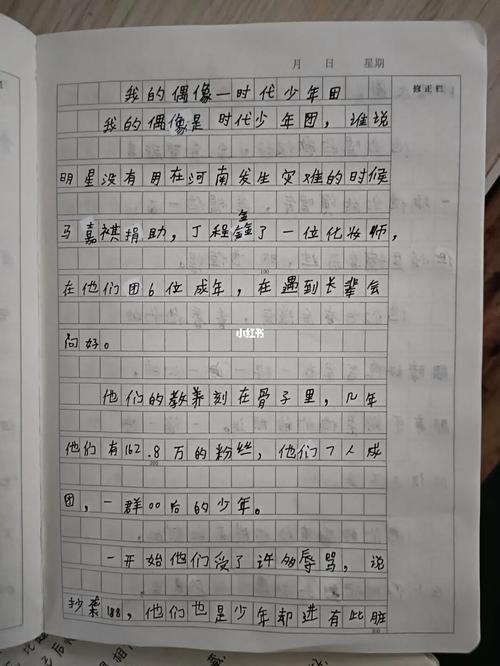 月 日 星期
修正栏
我的偶像一时代少年田
我的偶像是时代少年团，谁说
明星没有用在河南发生灾难的时候
马嘉祺捐助，丁程鑫了一位化妆师，
100
在他们团6位成年，在遇到长辈会
小红书
问好。
他们的教养刻在骨子里，几年
他们有162.8万的粉丝，他们7人成
200
团，一群00后的少年。
一开始他们受了许多辱骂，说
抄袭188，他们也是少年却进有此脏
300